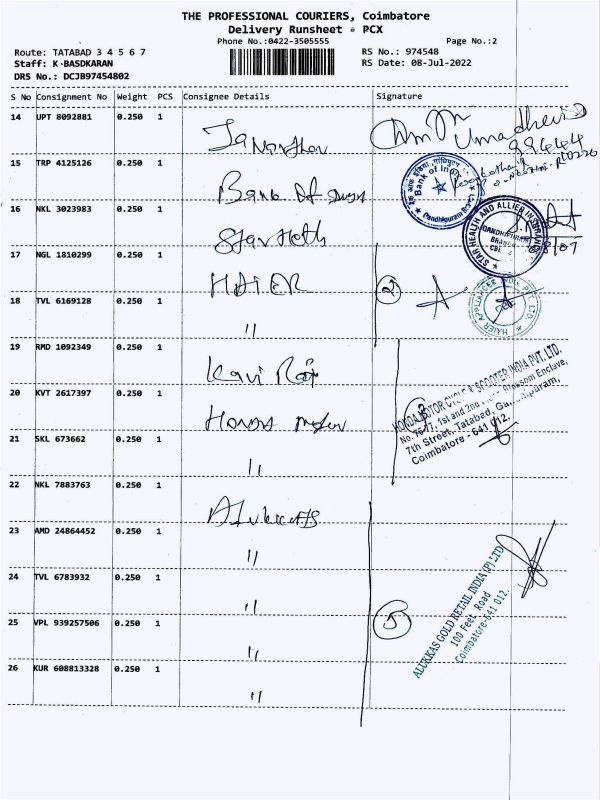 THE PROFESSIONAL COURIERS, Coimbatore
Delivery Runsheet - PCX
Phone No.:0422-3505555
Page No.:2
Route: TATABAD 3 4 5 6 7
RS No.: 974548
Staff: K·BASDKARAN
RS Date: 08-Jul-2022
DRS No.: DCJB97454802
S No Consignment No Weight PCS Consignee Details Signature
14 UPT 8092881 0.250 1 Janardhan
Umadhevi
99444
15 TRP 4125126 0.250 1 Bank Of
Bank of India
Gandhipuram Branch
16 NKL 3023983 0.250 1 Star Helth
STAR HEALTH AND ALLIED INSURANCE
GANDHIPURAM
BRANCH
CBE
17 NGL 1810299 0.250 1 HAIER
2
18 TVL 6169128 0.250 1 "
HAIER APPLIANCES INDIA PVT. LTD.
19 RMD 1092349 0.250 1 Kavi Raj
20 KVT 2617397 0.250 1 Honda
HONDA MOTOR CYCLE & SCOOTER INDIA PVT. LTD.
1st and 2nd Blossom Enclave,
7th Street, Tatabad,
Coimbatore - 641 012.
21 SKL 673662 0.250 1 "
22 NKL 7883763 0.250 1 Alukkas
23 AMD 24864452 0.250 1 "
24 TVL 6783932 0.250 1 "
5
ALUKKAS GOLD RETAIL INDIA (P) LTD
100 Feet Road
Coimbatore-641 012.
25 VPL 939257506 0.250 1 "
26 KUR 608813328 0.250 1 "